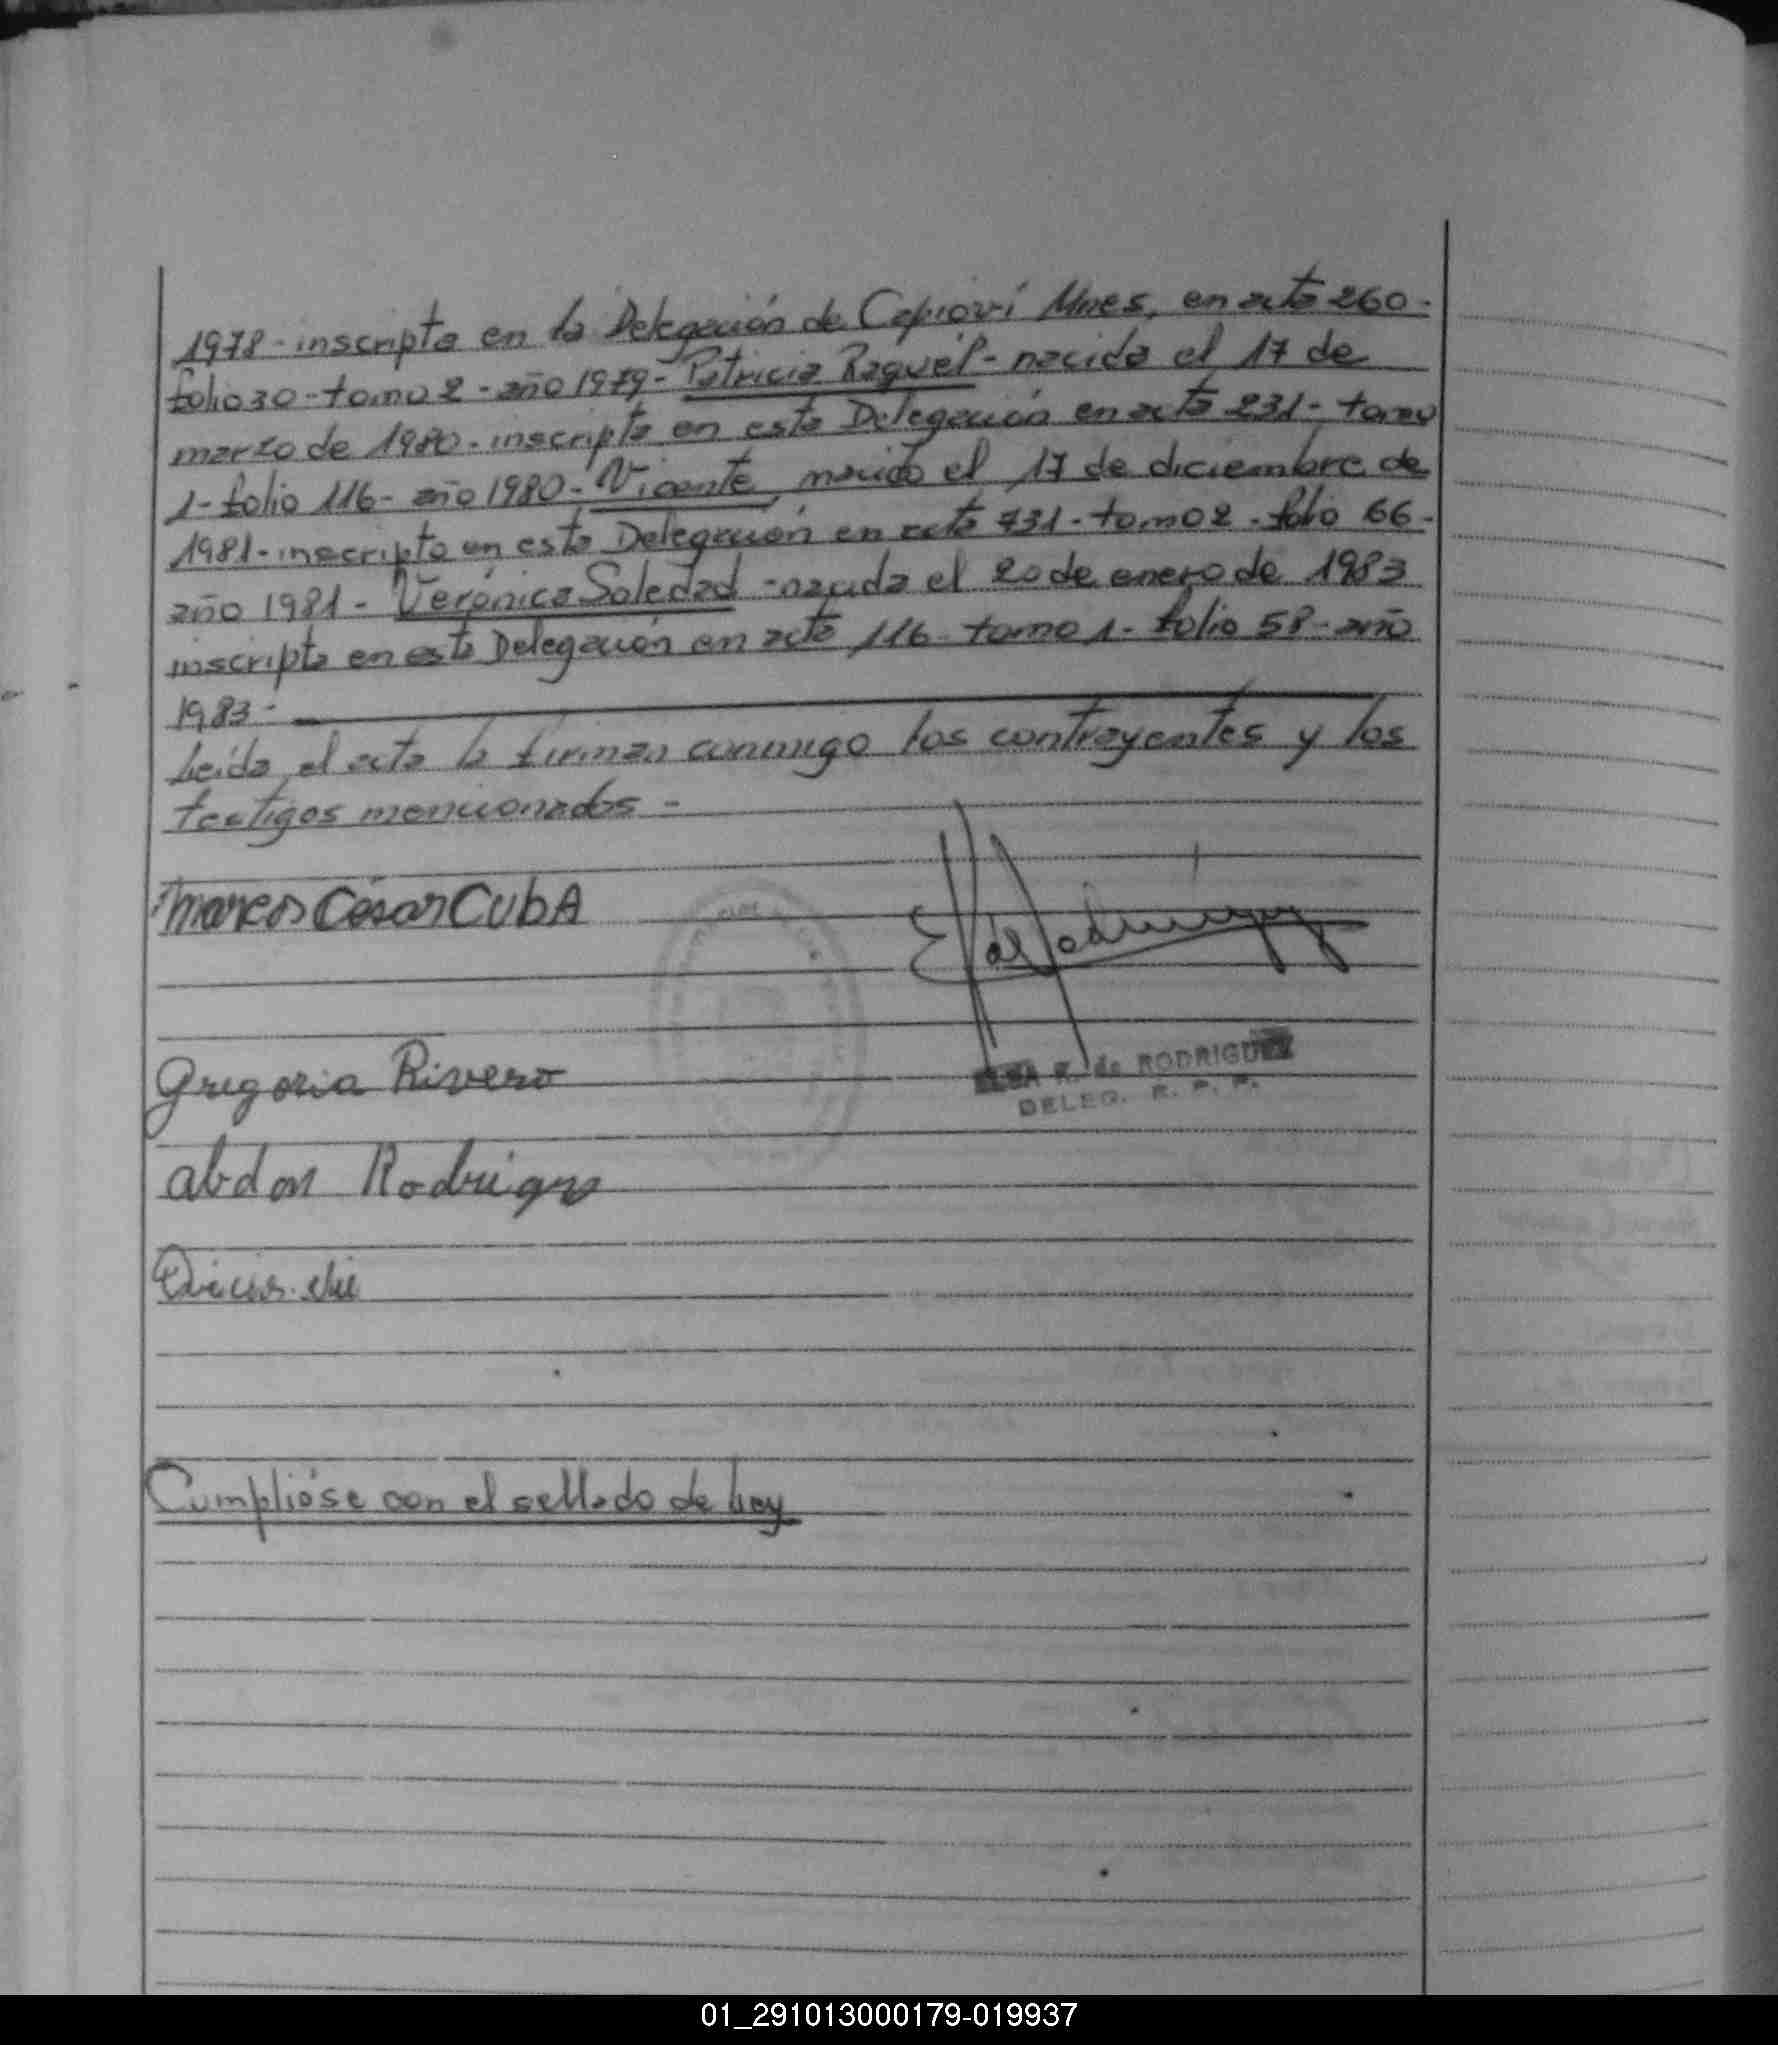 1978-inscripta en la Delegación de Capioví Mnes, en acta 260-
folio 30-tomo 2-año 1979-Patricia Raquel-nacida el 17 de
marzo de 1980-inscripta en esta Delegación en acta 231-tomo
1-folio 116-año 1980-Vicente, nacido el 17 de diciembre de
1981-inscripto en esta Delegación en acta 731-tomo 2-folio 66-
año 1981-Verónica Soledad-nacida el 20 de enero de 1983
inscripta en esta Delegación en acta 116-tomo 1-folio 58-año
1983-
Leída el acta la firman conmigo los contrayentes y los
testigos mencionados-
Marcos César CubA
E de Rodríguez
Gregoria Rivero
R. de RODRIGUEZ
DELEG. R. P. P.
abdon Rodrigues
Cumplióse con el sellado de Ley
01_291013000179-019937